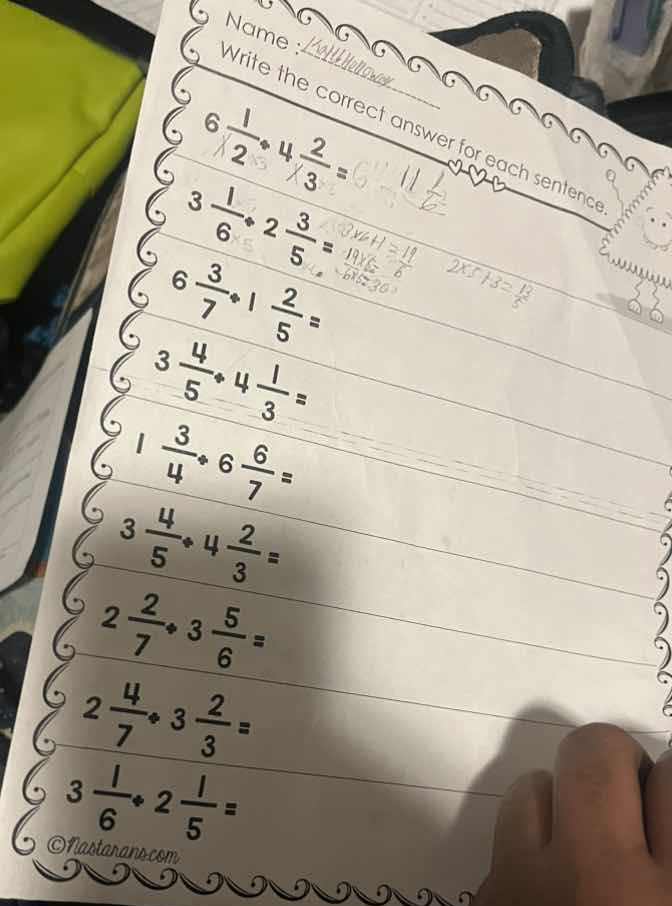 Name :
Write the correct answer for each sentence.
6 1/2 + 4 2/3 = 11 1/6
3 1/6 + 2 3/5 = 3x6+1=19/6 2x5+3=13/5
6 3/7 + 1 2/5 =
3 4/5 + 4 1/3 =
1 3/4 + 6 6/7 =
3 4/5 + 4 2/3 =
2 2/7 + 3 5/6 =
2 4/7 + 3 2/3 =
3 1/6 + 2 1/5 =
©Nastarans.com